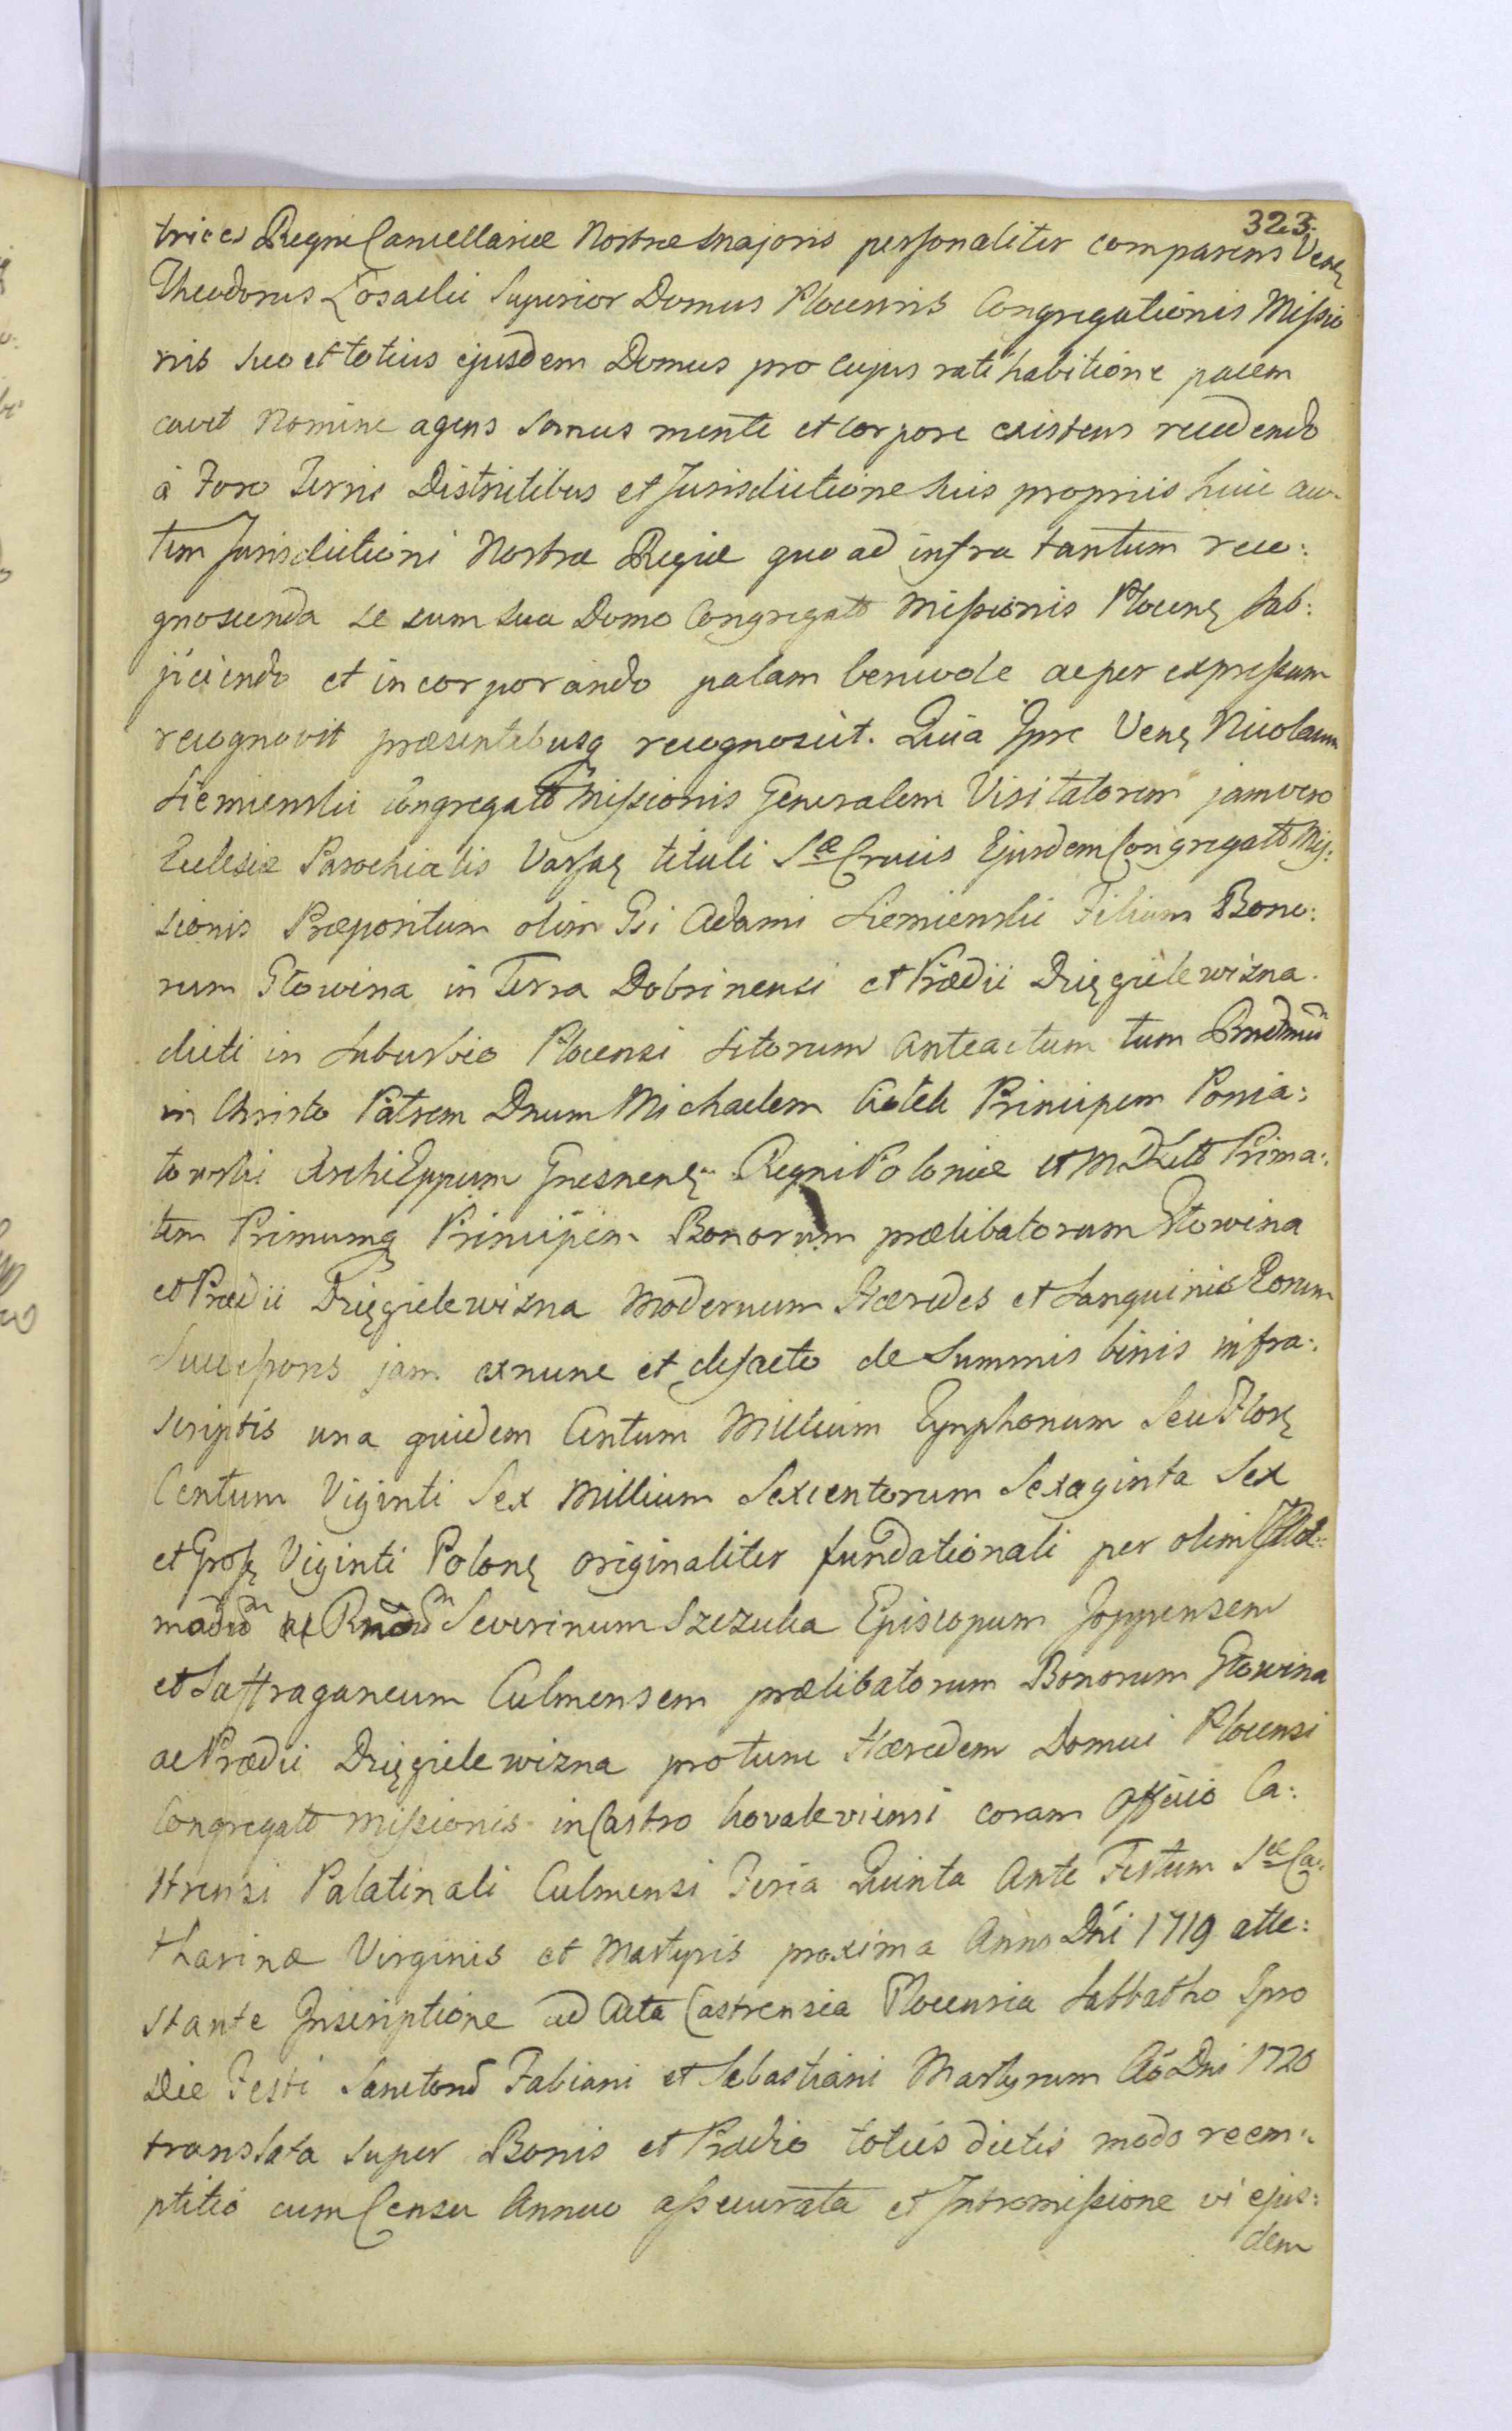 323.
trices Regni Cancellariæ Nostræ Majoris personaliter comparens Vene
Theodorus Łosacki Superior Domus Plocensis Congregationis Missio
nis suo et totius ejusdem Domus pro cujus ratihabitione pacem
cavet Nomine agens sanus mente et corpore existens recedendo
à Foro Terris Districtibus et Jurisdictione suis propriis huic au=
tem Jurisdictioni Nostræ Regiæ quo ad infra tantum reco:
gnoscenda se cum sua Domo Congregatō Missionis Plocenę sub:
jiciendo et incorporando palam benivole ac per expressum
recognovit præsentibusq recognoscit. Quia Ipse Venę Nicolaum
Siemienski Congregatō Missionis Generalem Visitatorem jam vero
Ecclesiæ Parochialis Varsaę tituli Sæ Crucis Ejusdem Congregatō Mis:
sionis Præpositum olim Gsi Adami Siemienski Filium Bono:
rum Głowina in Terra Dobrinensi et Prædii Dzięgielewizna
dicti in suburbio Plocensi sitorum anteactum tum
in Christo Patrem Dnum Michaelem Ciołek Principem Ponia:
towski ArchiEppum Gnesnenę Regni Poloniæ et M D Littō Prima:
tem Primumq Principem Bonorum prælibatorum Głowina
et Prædii Dzięgielewizna Modernum Hæredes et Sanguinis Eorum
Successores jam exnunc et defacto de Summis binis infra:
scriptis una quidem Centum Millium Tynphonum Seu Florę
Centum Viginti Sex Millium Sexcentorum Sexaginta Sex
et Grosę Viginti Polonę originaliter fundationali per olim
Severinum Szczuka Episcopum Joppensem
et Suffraganeum Culmensem prælibatorum Bonorum Głowina
ac Prædii Dzięgielewizna protunc Hæredem Domui Plocensi
Congregatō Missionis in Castro Kovaleviensi coram Officio Ca:
strensi Palatinali Culmensi Feria Quinta Ante Festum Sæ Ca:
tharinæ Virginis et Martyris proxima Anno Dni 1719 atte:
stante Inscriptione ad Acta Castrensia Plocensia Sabbatho Ipso
Die Festi Sanctorū Fabiani et Sebastiani Martyrum Aō Dni 1720
translata super Bonis et Prædio toties dictis modo reem=
ptitio cum Censu Annuo assecurata et Intromissione vi ejus:
dem